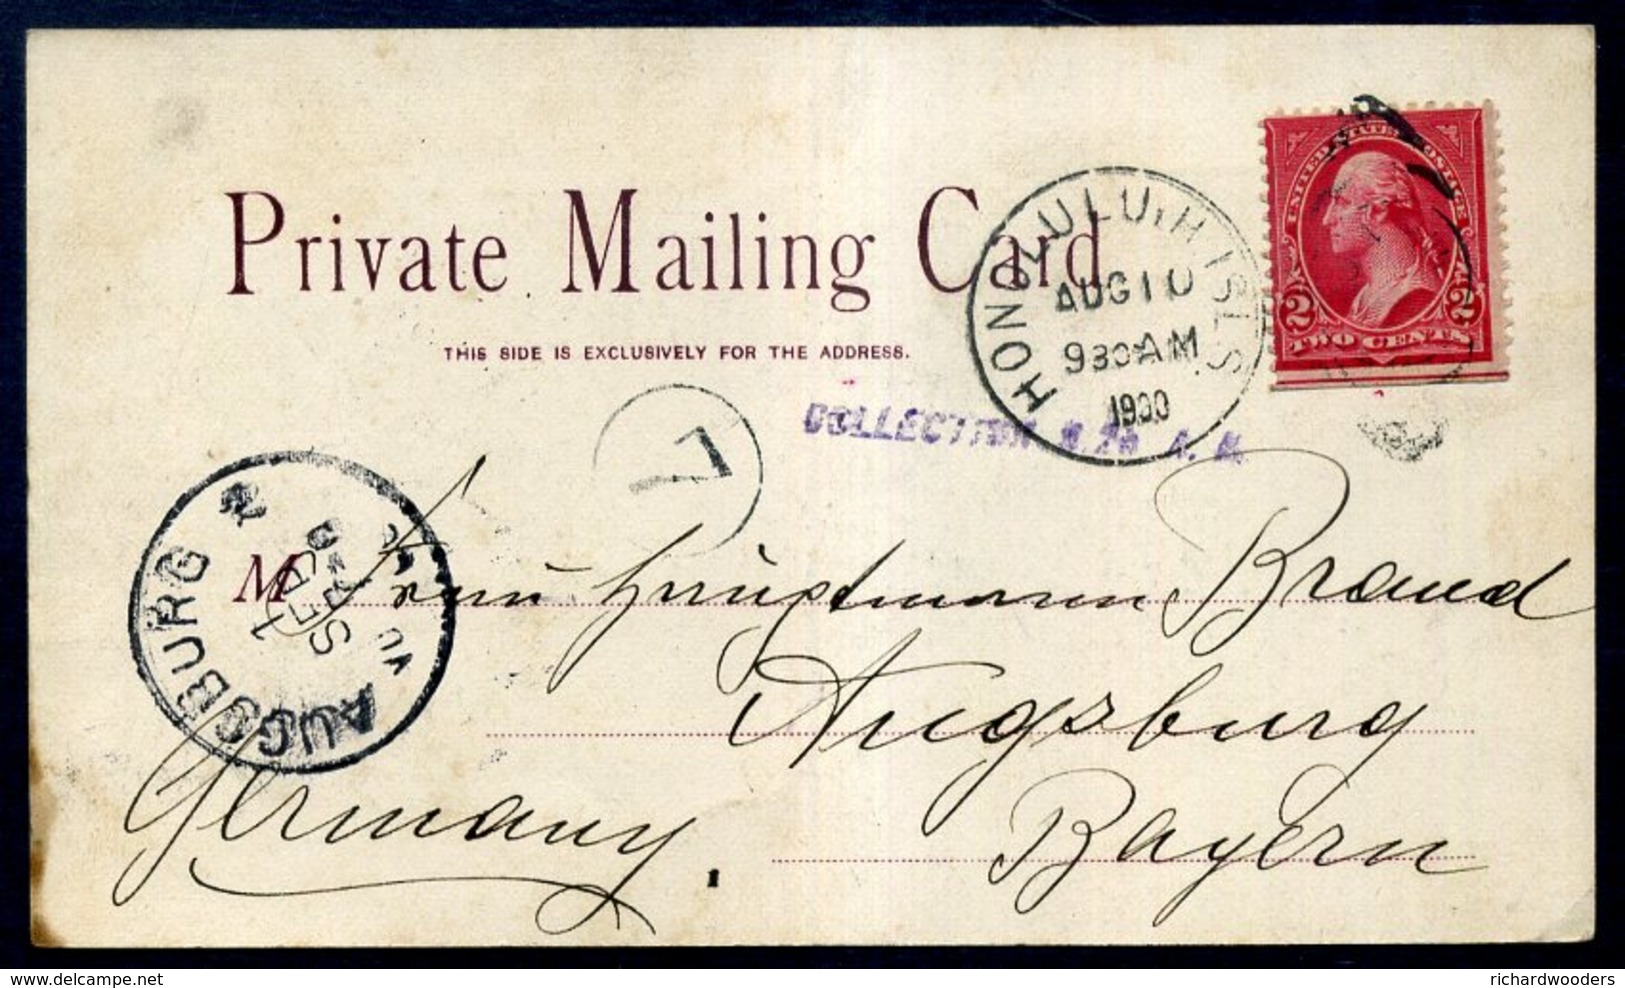 Private Mailing Card.
THIS SIDE IS EXCLUSIVELY FOR THE ADDRESS.
HONOLULU, H. ISLS
AUG 10
930 AM
1900
UNITED STATES POSTAGE
2 2
TWO CENTS
COLLECTION
7
AUGSBURG 2
1 SEP
M Frau Hauptmann Brand
Augsburg
Bayern
Germany.
richardwooders